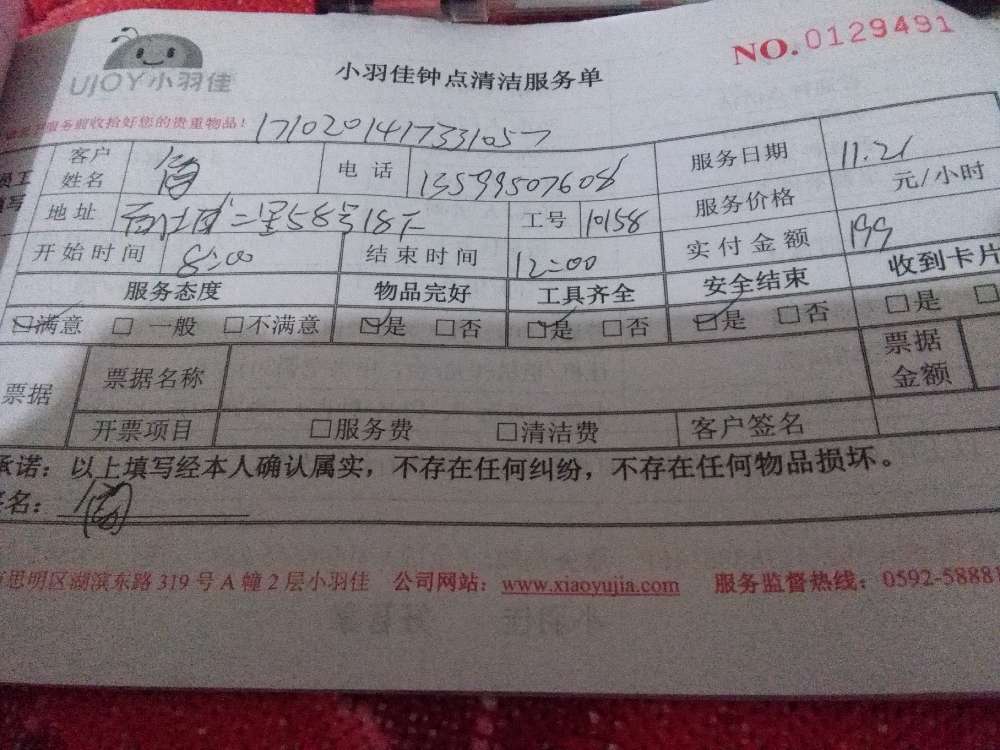 UJOY小羽佳
小羽佳钟点清洁服务单
NO.0129491
服务前收拾好您的贵重物品！
1710201417331057
员工 客户姓名 电话 13599507608 服务日期 11.21
填写 地址 二里58号18 工号 10158 服务价格 元/小时
开始时间 8:00 结束时间 12:00 实付金额 199
服务态度 物品完好 工具齐全 安全结束 收到卡片
☑满意 □一般 □不满意 ☑是 □否 ☑是 □否 ☑是 □否 □是 □
票据 票据名称 票据金额
开票项目 □服务费 □清洁费 客户签名
承诺：以上填写经本人确认属实，不存在任何纠纷，不存在任何物品损坏。
签名：
思明区湖滨东路319号A幢2层小羽佳 公司网站：www.xiaoyujia.com 服务监督热线：0592-58881